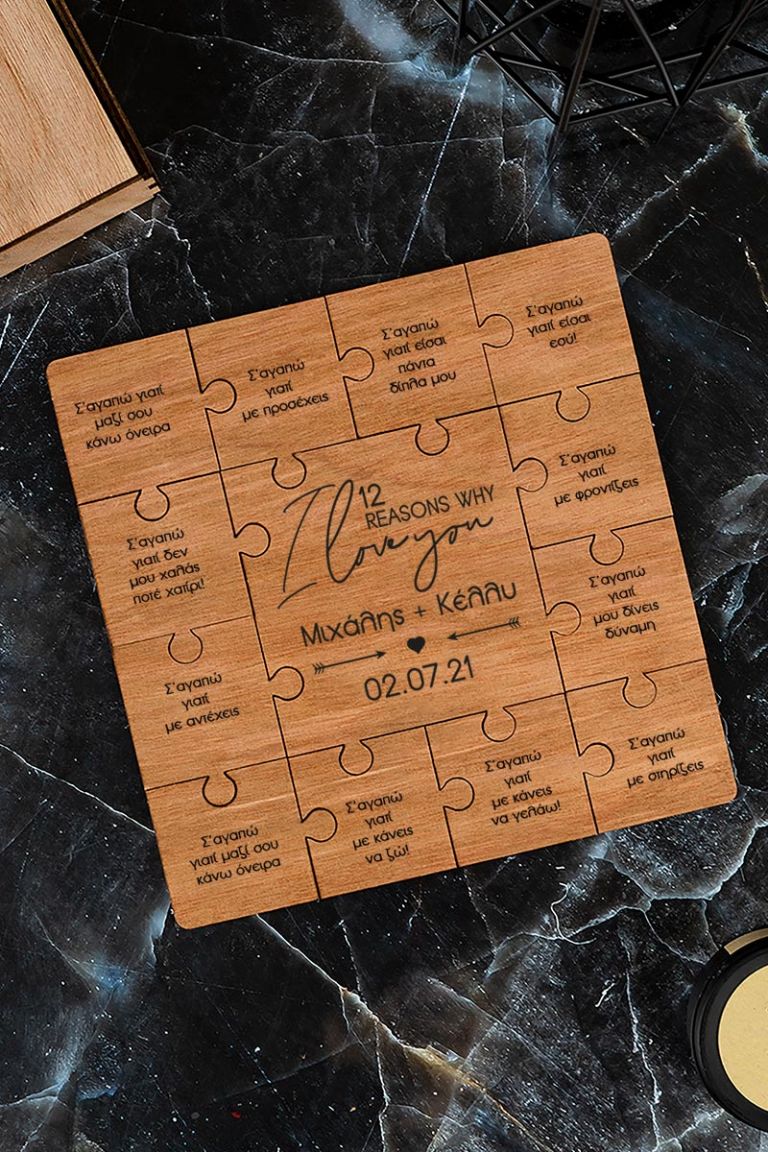 Σ'αγαπώ γιατί
μαζί σου
κάνω όνειρα
Σ'αγαπώ
γιατί
με προσέχεις
Σ'αγαπώ
γιατί είσαι
πάντα
δίπλα μου
Σ'αγαπώ
γιατί είσαι
εσύ!
Σ'αγαπώ
γιατί δεν
μου χαλάς
ποτέ χατίρι!
12
REASONS WHY
I love you
Μιχάλης + Κέλλυ
02.07.21
Σ'αγαπώ
γιατί
με φροντίζεις
Σ'αγαπώ
γιατί
μου δίνεις
δύναμη
Σ'αγαπώ
γιατί
με αντέχεις
Σ'αγαπώ
γιατί μαζί σου
κάνω όνειρα
Σ'αγαπώ
γιατί
με κάνεις
να ζώ!
Σ'αγαπώ
γιατί
με κάνεις
να γελάω!
Σ'αγαπώ
γιατί
με στηρίζεις